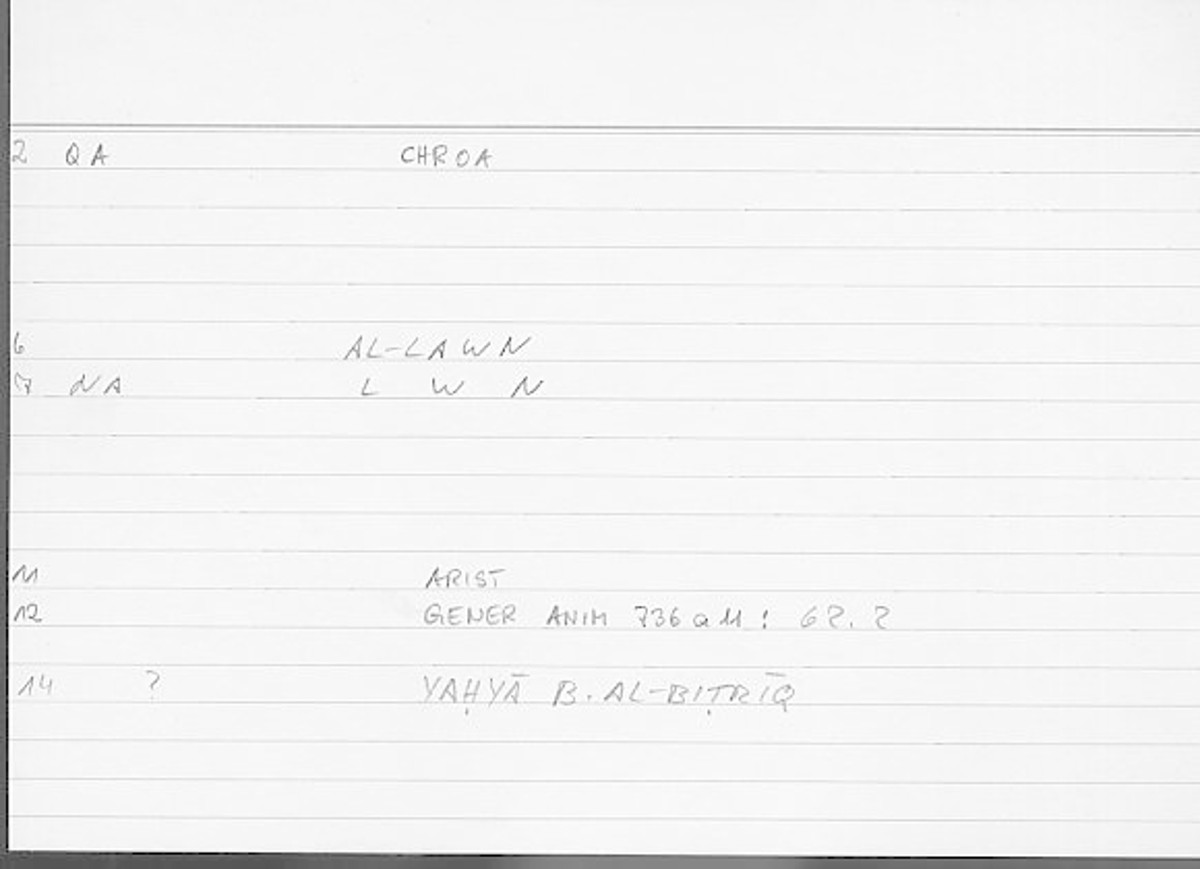 2 QA CHROA
6 AL-LAWN
7 NA L W N
11 ARIST
12 GENER ANIM 736a11: 62.2
14 ? YAḤYĀ B. AL-BIṬRĪQ